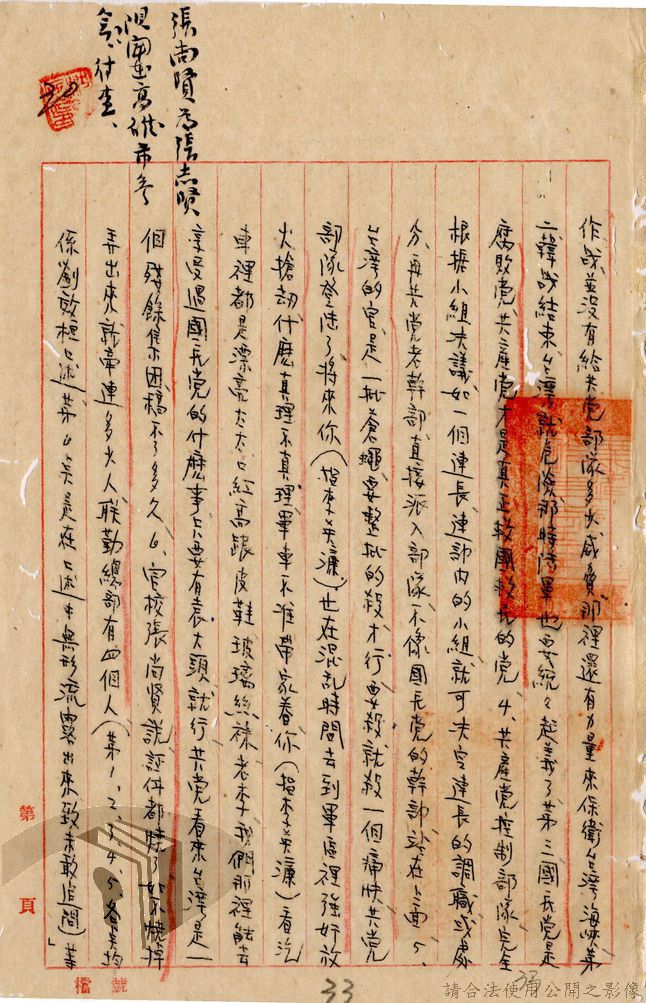 張尚賢為張志賢
現匿在高雄市
作战並没有給共党部隊多大威脅那裡還有力量來保衛台湾海峡第
二韓战結束台湾就危險那時陸軍也要統々起義了第三國民党是
腐敗党共產党才是真正救國救民的党 4、共產党控制部隊完全
根據小組决議如一個連長連部内的小組就可决定連長的調職或處
分、再共党老幹部直接派入部隊不像國民党的幹部站在上面 5、
台湾的官是一批蒼蠅要整批的殺才行要殺就殺一個痛快共党
部隊登陆了將來你(指李英濂)也在混乱時間去到軍區裡強奸放
火搶劫什麽真理不真理軍車不准帶家眷你(指李英濂)看汽
車裡都是漂亮太太口紅高跟皮鞋玻璃絲袜老李我們那裡能去
享受過國民党的什麽事只要有袁大頭就行共党看來台湾是一
個殘餘集团搞不了多久 6、官校張尚賢說証件都燒了如不燒掉
弄出來就牽連多少人聯勤總部有四個人(第1、2、3、4、5、各点均
係劉敦桓口述第6点是在口述中無形流露出來致未敢追問)第」
第 頁
檔 號
33
請合法使用公開之影像